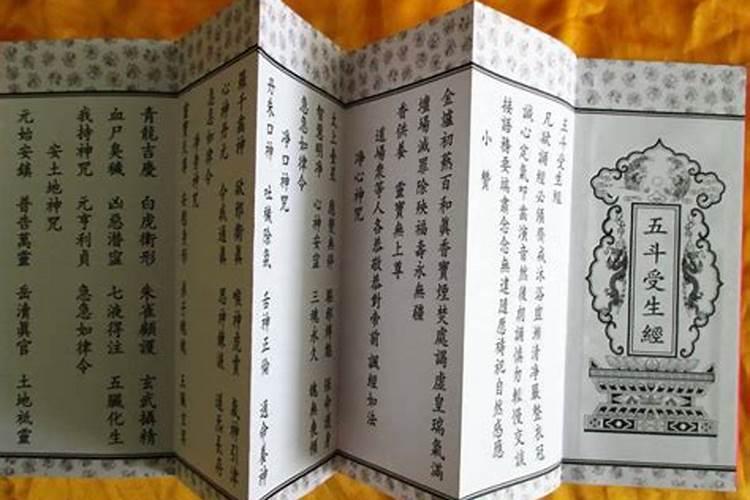 五斗受生經
五斗受生經
凡欲誦經必須齋戒沐浴盥漱清淨嚴整衣冠
誠心定氣叩齒演音然後朗誦慎勿輕慢交談
接語務要端肅念念無違隨愿禱祀自然感應
小贊
金爐初爇百和真香寶煙焚處謁虛皇瑞氣滿
壇場滅罪除殃福壽永無疆
香供養 靈寶無上尊
道場眾等人各恭敬恭對帝前 諷經如法
淨心神咒
太上台星 應變無停 驅邪縛魅 保命護身
智慧明淨 心神安寧 三魂永久 魄無喪傾
急急如律令
淨口神咒
丹朱口神 吐穢除氛 舌神正倫 通命養神
羅千齒神 卻邪衛真 喉神虎賁 炁神引津
心神丹元 令我通真 思神鍊液 道炁長存
急急如律令
淨身神咒
靈寶天尊 安慰身形 弟子魂魄 五臟玄冥
青龍吉慶 白虎衛形 朱雀顧護 玄武攝精
血尸臭穢 凶惡潛窪 七液得注 五臟化生
我持神咒 元亨利貞 急急如律令
安土地神咒
元始安鎮 普告萬靈 岳清真官 土地祇靈